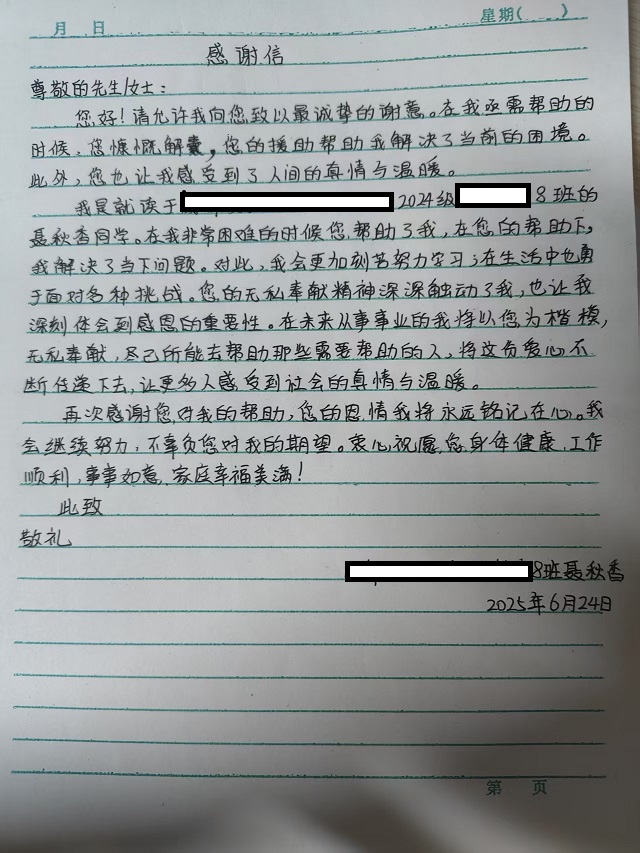 月 日 星期( )
感谢信
尊敬的先生/女士：
您好！请允许我向您致以最诚挚的谢意。在我亟需帮助的
时候，您慷慨解囊，您的援助帮助我解决了当前的困境。
此外，您也让我感受到了人间的真情与温暖。
我是就读于 2024级 8班的
聂秋香同学。在我非常困难的时候您帮助了我，在您的帮助下，
我解决了当下问题。对此，我会更加刻苦努力学习；在生活中也勇
于面对多种挑战。您的无私奉献精神深深触动了我，也让我
深刻体会到感恩的重要性。在未来从事事业的我将以您为楷模，
无私奉献，尽己所能去帮助那些需要帮助的人，将这份爱心不
断传递下去，让更多人感受到社会的真情与温暖。
再次感谢您对我的帮助，您的恩情我将永远铭记在心。我
会继续努力，不辜负您对我的期望。衷心祝愿您身体健康，工作
顺利，事事如意，家庭幸福美满！
此致
敬礼
8班聂秋香
2025年6月24日
第 页